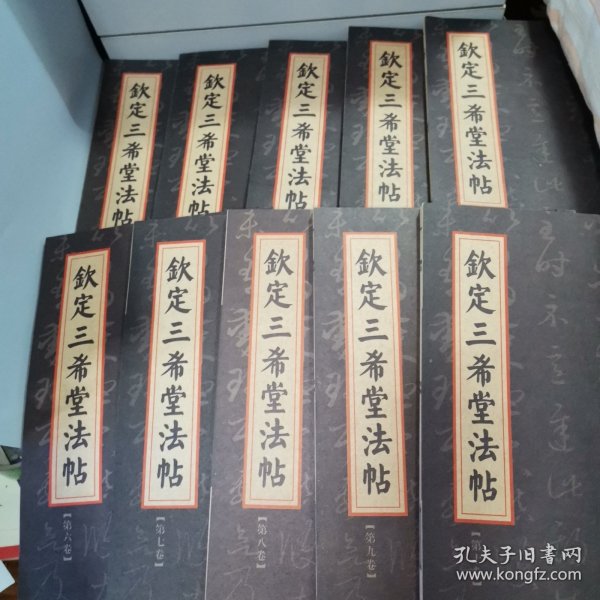 欽定三希堂法帖
欽定三希堂法帖
欽定三希堂法帖
欽定三希堂法帖
欽定三希堂法帖
欽定三希堂法帖
【第六卷】
欽定三希堂法帖
【第七卷】
欽定三希堂法帖
【第八卷】
欽定三希堂法帖
【第九卷】
欽定三希堂法帖
孔夫子旧书网
www.kongfz.com